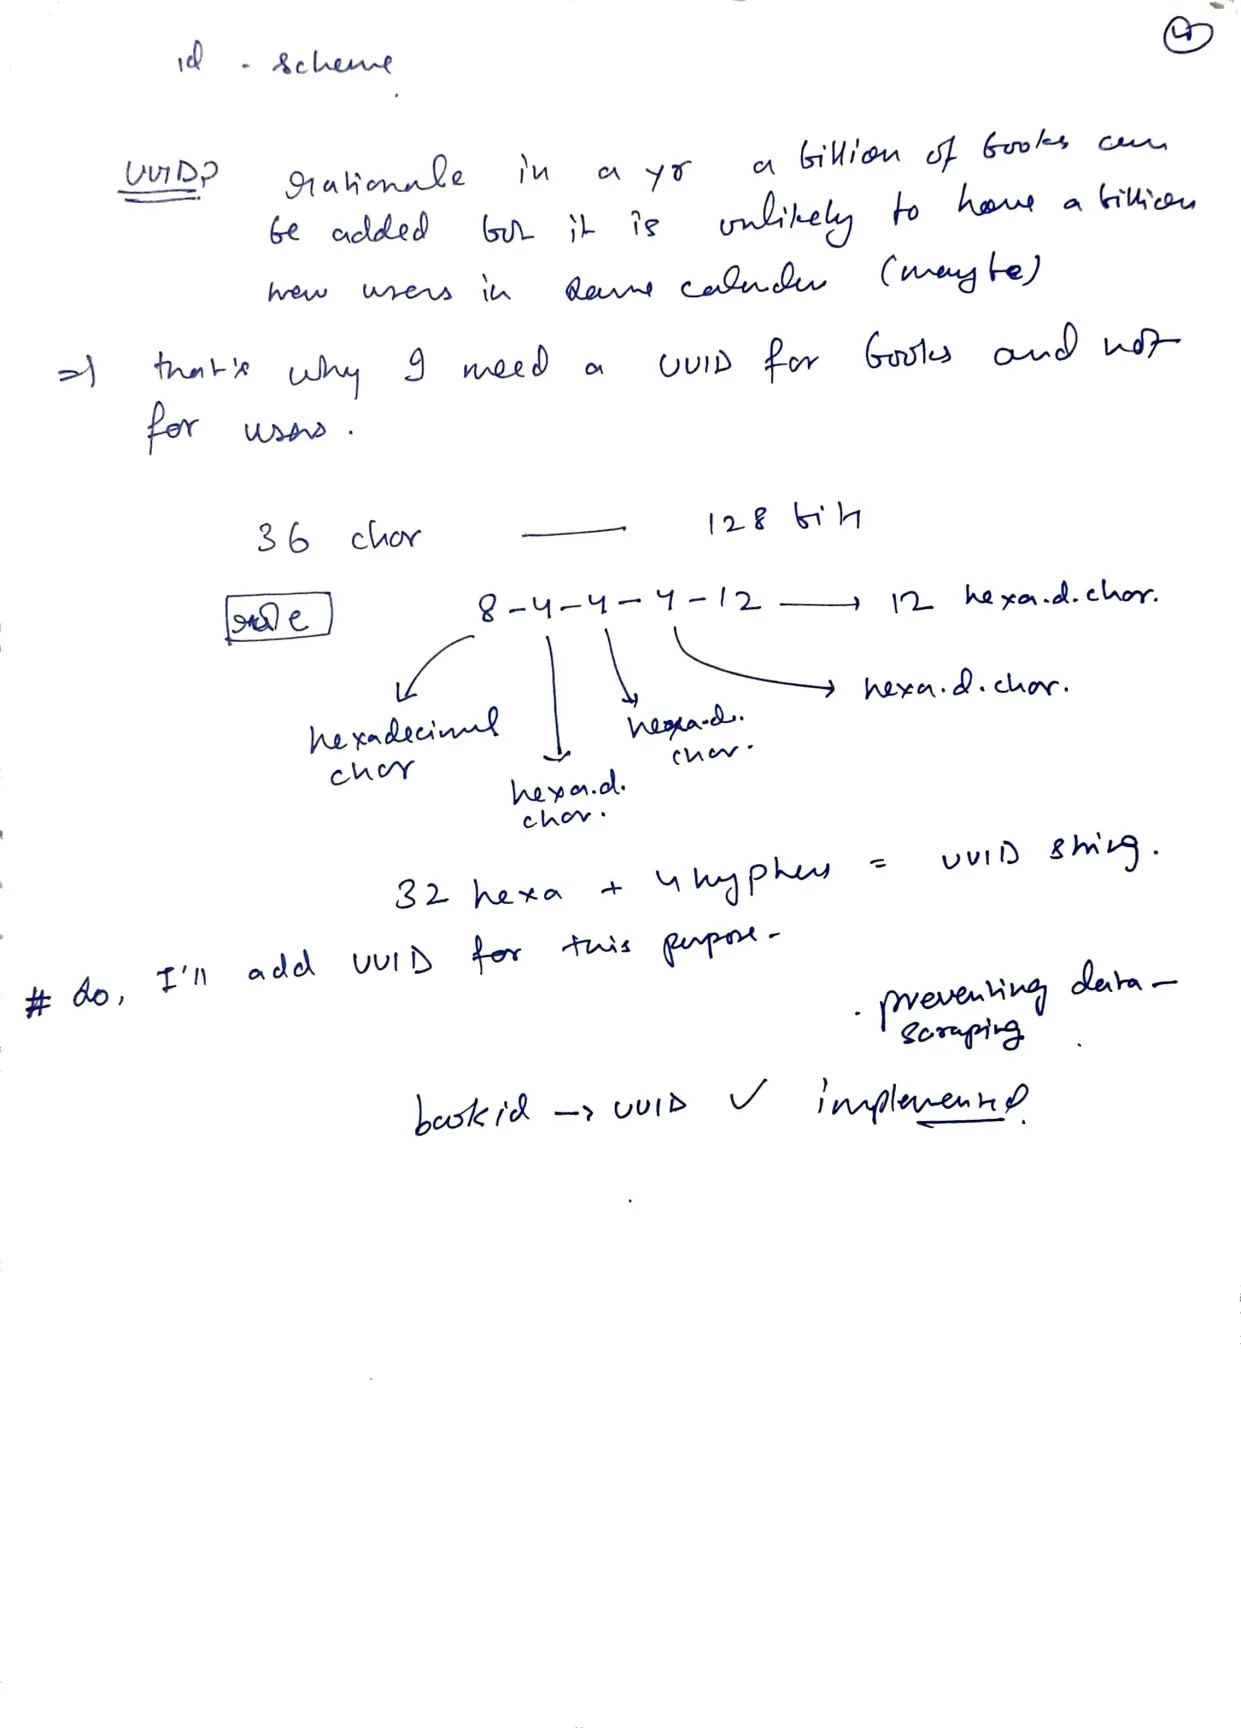 4
id - scheme
UUID? rationale in a yr a billion of books can
be added but it is unlikely to have a billion
new users in same calender (maybe)
=> that's why I need a UUID for books and not
for users.
36 char —— 128 bits
rule 8-4-4-4-12 → 12 hexa.d.char.
hexa.d.char.
hexadecimal
char
hexa.d.
char.
hexa.d.
char.
32 hexa + 4 hyphens = UUID string.
# So, I'll add UUID for this purpose -
. preventing data -
scraping
book id → UUID ✓ implemented.